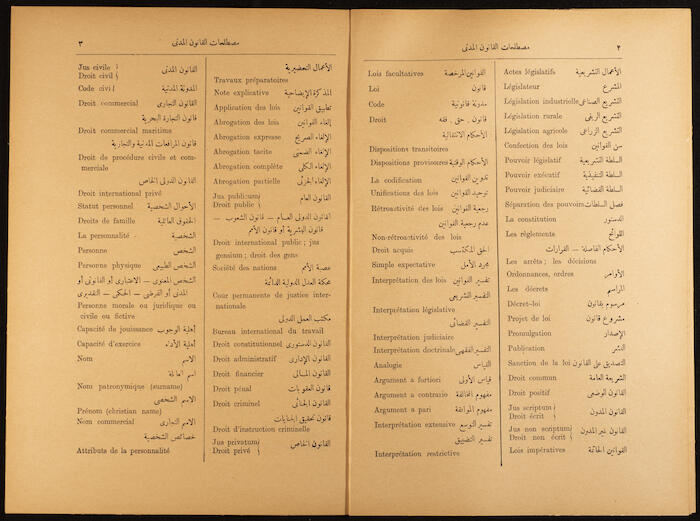 مصطلحات القانون المدنى ٢
Actes législatifs الأعمال التشريعية
Législateur المشرع
Législation industrielle التشريع الصناعى
Législation rurale التشريع الريفى
Législation agricole التشريع الزراعى
Confection des lois سن القوانين
Pouvoir législatif السلطة التشريعية
Pouvoir exécutif السلطة التنفيذية
Pouvoir judiciaire السلطة القضائية
Séparation des pouvoirs فصل السلطات
La constitution الدستور
Les règlements اللوائح
الأحكام الفاصلة — القرارات
Les arrêts; les décisions
Ordonnances, ordres الأوامر
Les décrets المراسم
Décret-loi مرسوم بقانون
Projet de loi مشروع قانون
Promulgation الإصدار
Publication النشر
Sanction de la loi التصديق على القانون
Droit commun الشريعة العامة
Droit positif القانون الوضعى
Jus scriptum القانون المدون
Droit écrit
Jus non scriptum القانون غير المدون
Droit non écrit
Lois impératives القوانين الحاتمة
Lois facultatives القوانين المرخصة
Loi قانون
Code مدونة قانونية
Droit قانون ، حق ، فقه
الأحكام الانتقالية
Dispositions transitoires
Dispositions provisoires الأحكام الوقتية
La codification تدوين القوانين
Unifications des lois توحيد القوانين
Rétroactivité des lois رجعية القوانين
عدم رجعية القوانين
Non-rétroactivité des lois
Droit acquis الحق المكتسب
Simple expectative مجرد الأمل
Interprétation des lois تفسير القوانين
التفسير التشريعى
Interprétation législative
التفسير القضائى
Interprétation judiciaire
Interprétation doctrinale التفسير الفقهى
Analogie القياس
Argument a fortiori قياس الأولى
Argument a contrario مفهوم المخالفة
Argument a pari مفهوم الموافقة
Interprétation extensive تفسير التوسع
تفسير التضييق
Interprétation restrictive
٣ مصطلحات القانون المدنى
الأعمال التحضيرية
Travaux préparatoires
Note explicative المذكرة الإيضاحية
Application des lois تطبيق القوانين
Abrogation des lois إلغاء القوانين
Abrogation expresse الإلغاء الصريح
Abrogation tacite الإلغاء الضمنى
Abrogation complète الإلغاء الكلى
Abrogation partielle الإلغاء الجزئى
Jus publicum القانون العام
Droit public
القانون الدولى العام — قانون الشعوب —
قانون البشرية أو قانون الأمم
Droit international public; jus
gensium; droit des gens
Société des nations عصبة الأمم
محكمة العدل الدولية الدائمة
Cour permanente de justice inter-
nationale
مكتب العمل الدولى
Bureau international du travail
Droit constitutionnel القانون الدستورى
Droit administratif القانون الإدارى
Droit financier القانون المالى
Droit pénal قانون العقوبات
Droit criminel القانون الجنائى
قانون تحقيق الجنايات
Droit d'instruction criminelle
Jus privatum القانون الخاص
Droit privé
Jus civile القانون المدنى
Droit civil
Code civil المدونة المدنية
Droit commercial القانون التجارى
قانون التجارة البحرية
Droit commercial maritime
قانون المرافعات المدنية والتجارية
Droit de procédure civile et com-
merciale
القانون الدولى الخاص
Droit international privé
Statut personnel الأحوال الشخصية
Droits de famille الحقوق العائلية
La personnalité الشخصية
Personne الشخص
Personne physique الشخص الطبيعى
الشخص المعنوى — الاعتبارى أو القانونى أو
المدنى أو الفرضى — الحكمى — التقديرى
Personne morale ou juridique ou
civile ou fictive
Capacité de jouissance أهلية الوجوب
Capacité d'exercice أهلية الأداء
Nom الاسم
اسم العائلة
Nom patronymique (surname)
الاسم الشخصى
Prénom (christian name)
Nom commercial الاسم التجارى
خصائص الشخصية
Attributs de la personnalité